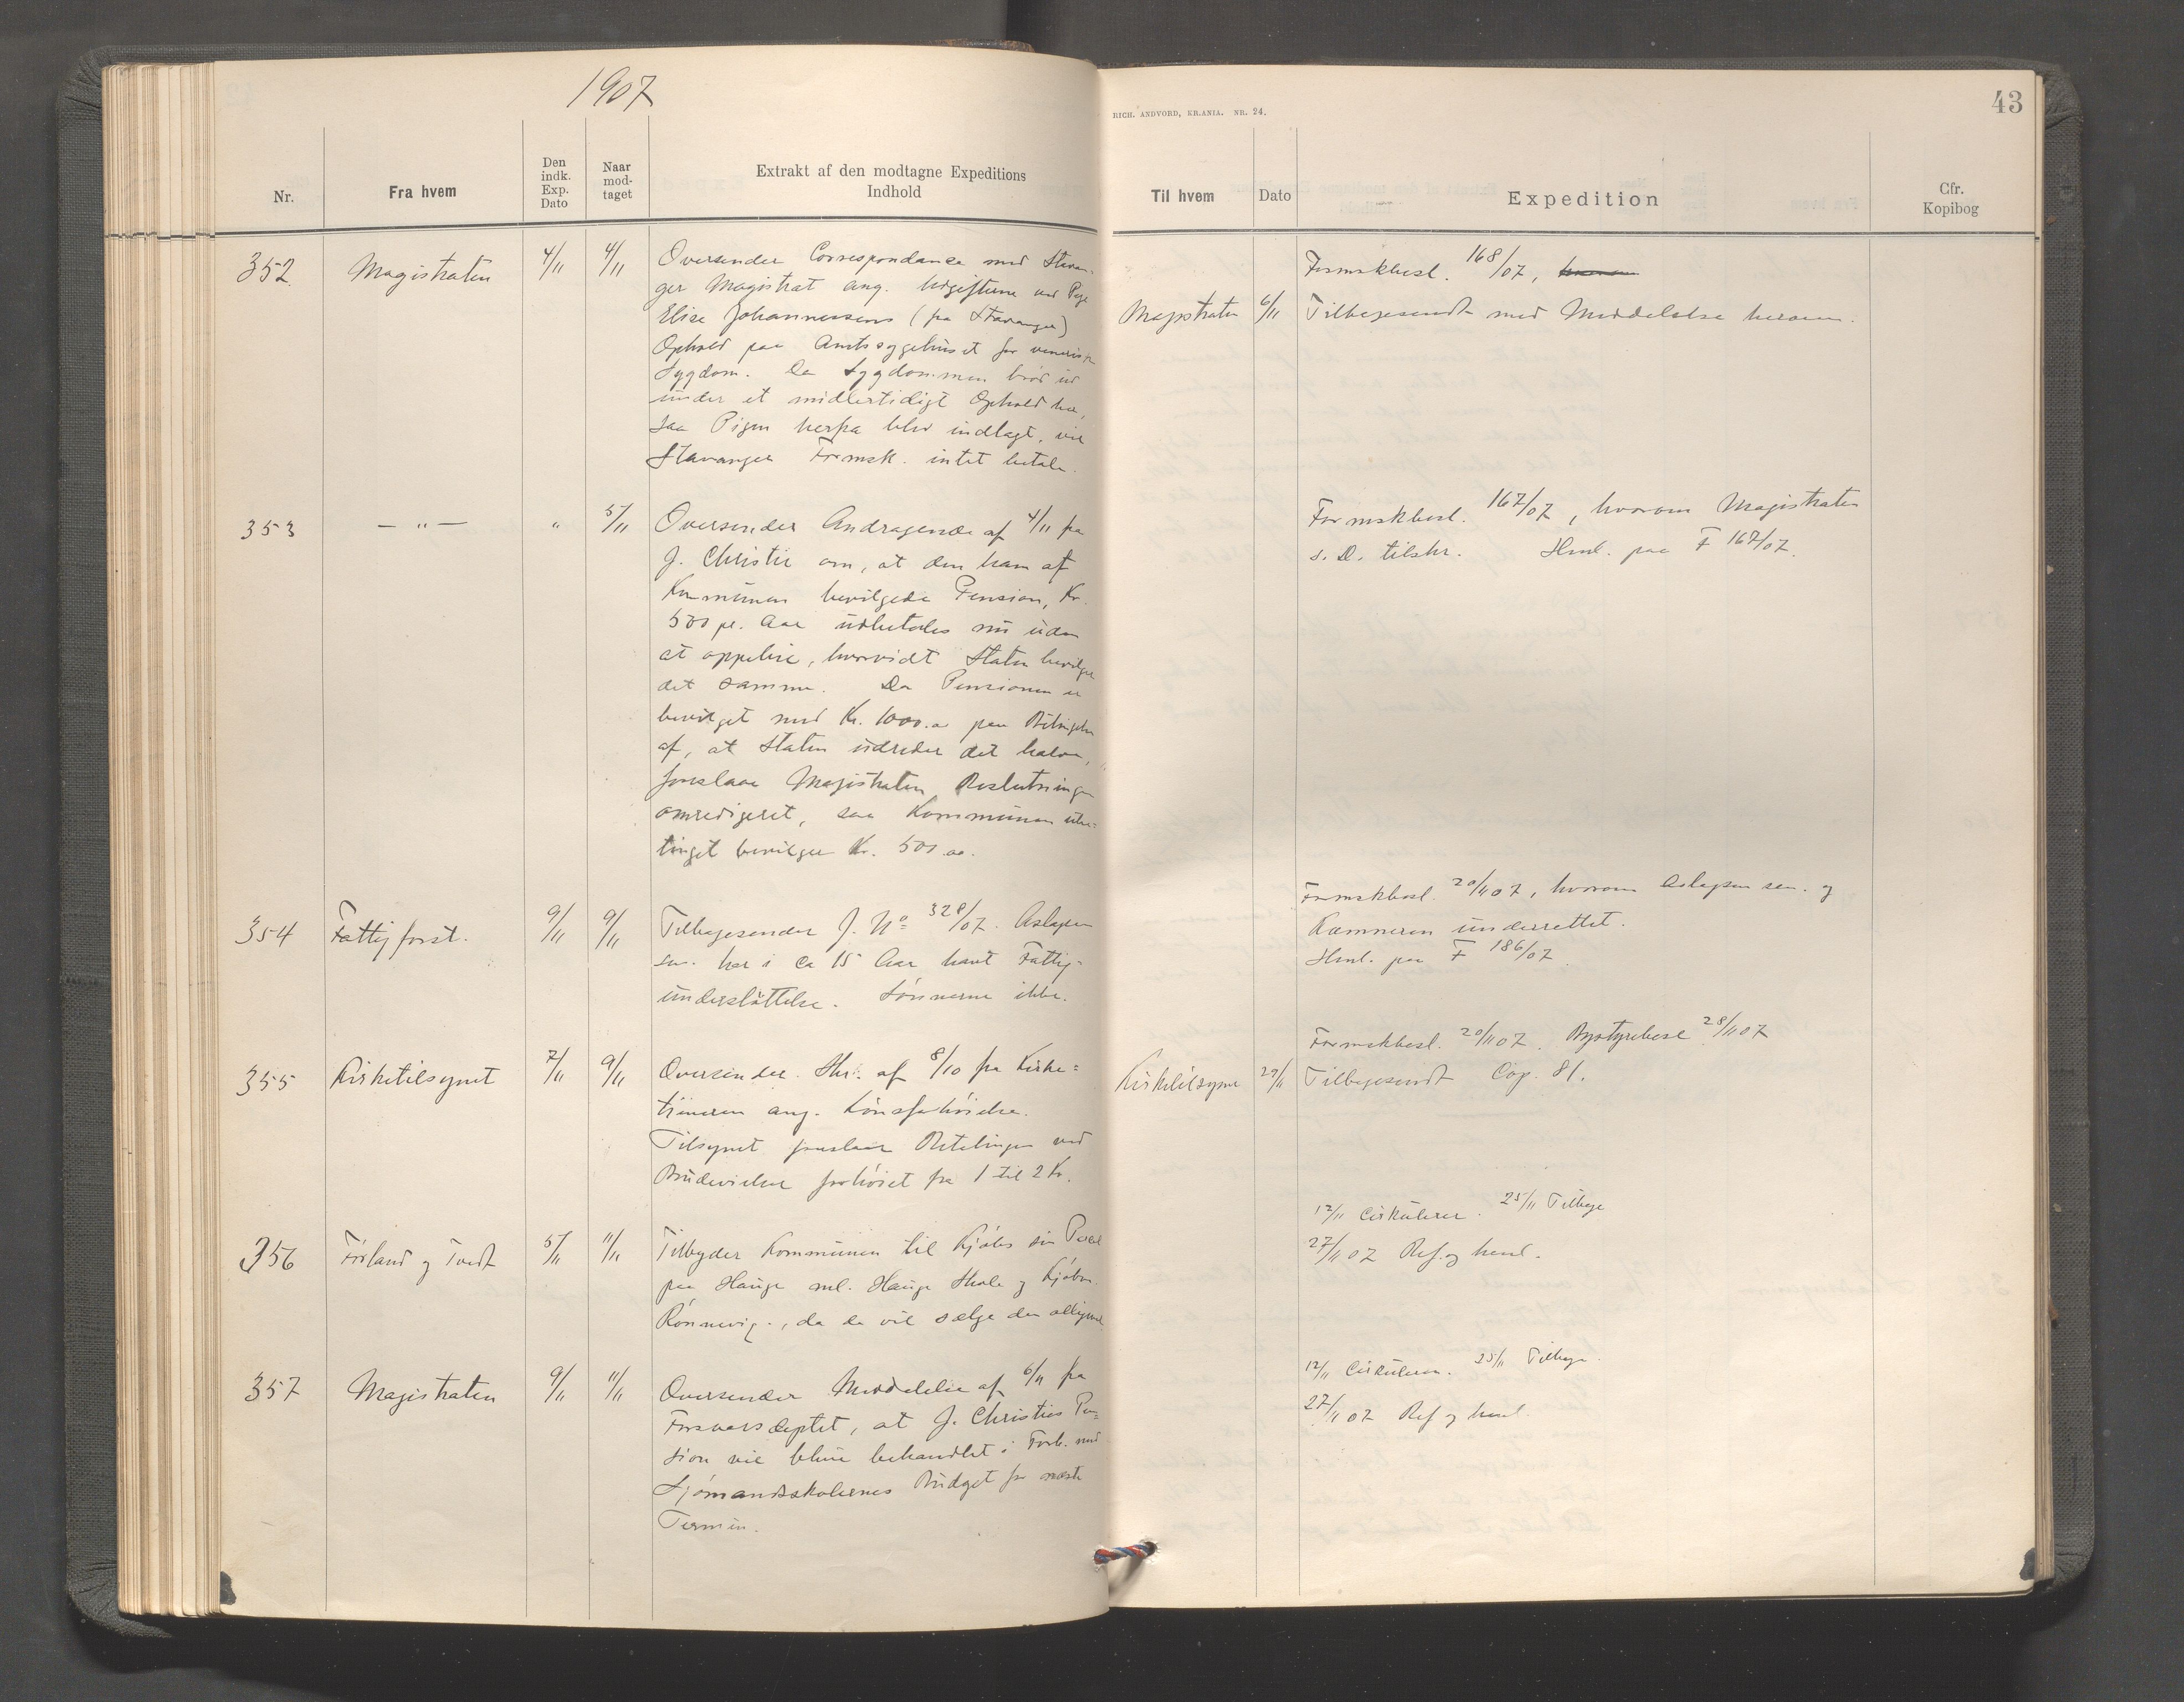 1907
Nr.
Fra hvem
Den
indk.
Exp.
Dato
Naar
mod-
taget
Extrakt af den modtagne Expeditions
Indhold
352.
Magistraten
4/11
4/11
Oversender Correspondance med Stavan-
ger Magistrat ang. Udgifterne ved Pige
Elise Johannessens (fra Stavanger)
Ophold paa Amtssygehuset for venerisk
Sygdom. Da Sygdommen brød ud
under et midlertidigt Ophold her,
saa Pigen herfra blev indlagt, vil
Stavanger Formsk. intet betale.
353
— „ —
„
5/11
Oversender Andragende af 4/11 fra
J. Christie om, at den ham af
Kommunen bevilgede Pension, Kr.
500 pr. Aar udbetales nu uden
at oppebie, hvorvidt Staten bevilger
det samme. Da Pensionen er
bevilget med Kr. 1000.00 paa Betingelse
af, at Staten udreder det halve,
foreslaar Magistraten Beslutningen
omredigeret, saa Kommunen ube-
tinget bevilger Kr. 500.00.
354
Fattigforst.
9/11
9/11
Tilbagesender J. No 328/07. Aslagsen
sen. har i ca 15 Aar havt Fattig-
understøttelse. Sønnerne ikke.
355
Kirketilsynet
7/11
9/11
Oversender Skr. af 8/10 fra Kirke=
tjeneren ang. Lønsforhøielse.
Tilsynet foreslaar Betalingen ved
Brudevielser forhøiet fra 1 til 2 Kr.
356
Førland og Tvedt
5/11
11/11
Tilbyder Kommunen til Kjøbs sin Parcel
paa Hauge ml. Hauge Skole og Kjøbm.
Rønnevig., da de vil sælge den alligevel
357
Magistraten
9/11
11/11
Oversender Meddelelse af 6/11 fra
Forsvarsdeptet, at J. Christies Pen=
sion vil blive behandlet i Forb. med
Sjømandsskolernes Budget for næste
Termin.
RICH. ANDVORD, KR.ANIA. NR. 24.
43
Til hvem
Dato
Expedition
Cfr.
Kopibog
Formskbesl. 168/07,
Magistraten
6/11
Tilbagesendt med Meddelelse herom.
Formskbesl. 167/07, hvorom Magistraten
s. D. tilskr. Henl. paa F 167/07.
Formskbesl. 20/11 07, hvorom Aslagsen sen. og
Kæmneren underrettet.
Henl. paa F 186/07.
Formskbesl. 20/11 07. Bystyrebesl 28/11 07
Kirketilsynet
29/11
Tilbagesendt Cop. 81.
12/11 Cirkulerer. 25/11 Tilbage
27/11 07 Ref. og henl.
12/11 Cirkulerer. 25/11 Tilbage.
27/11 07 Ref og henl.